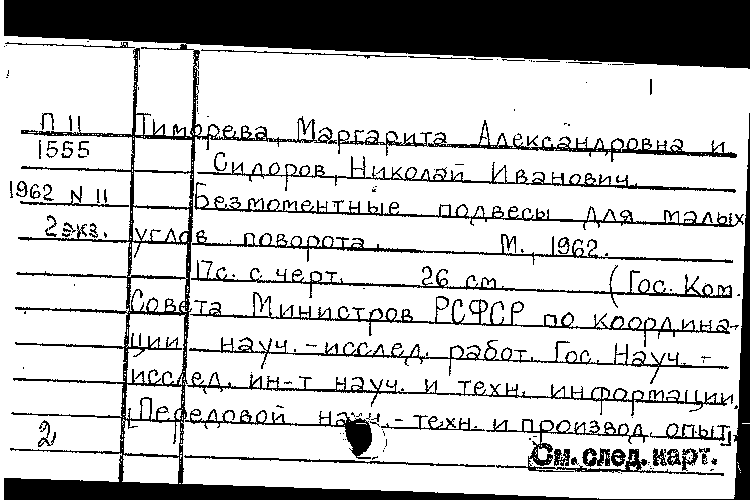 1
П 11 Тиморева, Маргарита Александровна и
1555 Сидоров, Николай Иванович.
1962 N 11 Безмоментные подвесы для малых
2 экз. углов поворота. М., 1962.
17с. с черт. 26 см (Гос. Ком.
Совета Министров РСФСР по координа-
ции науч.-исслед. работ. Гос. Науч.-
исслед. ин-т науч. и техн. информации.
Передовой научн.-техн. и производ. опыт.
2
См. след. карт.